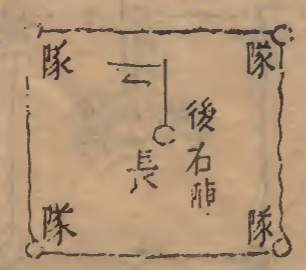 隊
隊
後右
長
隊
隊